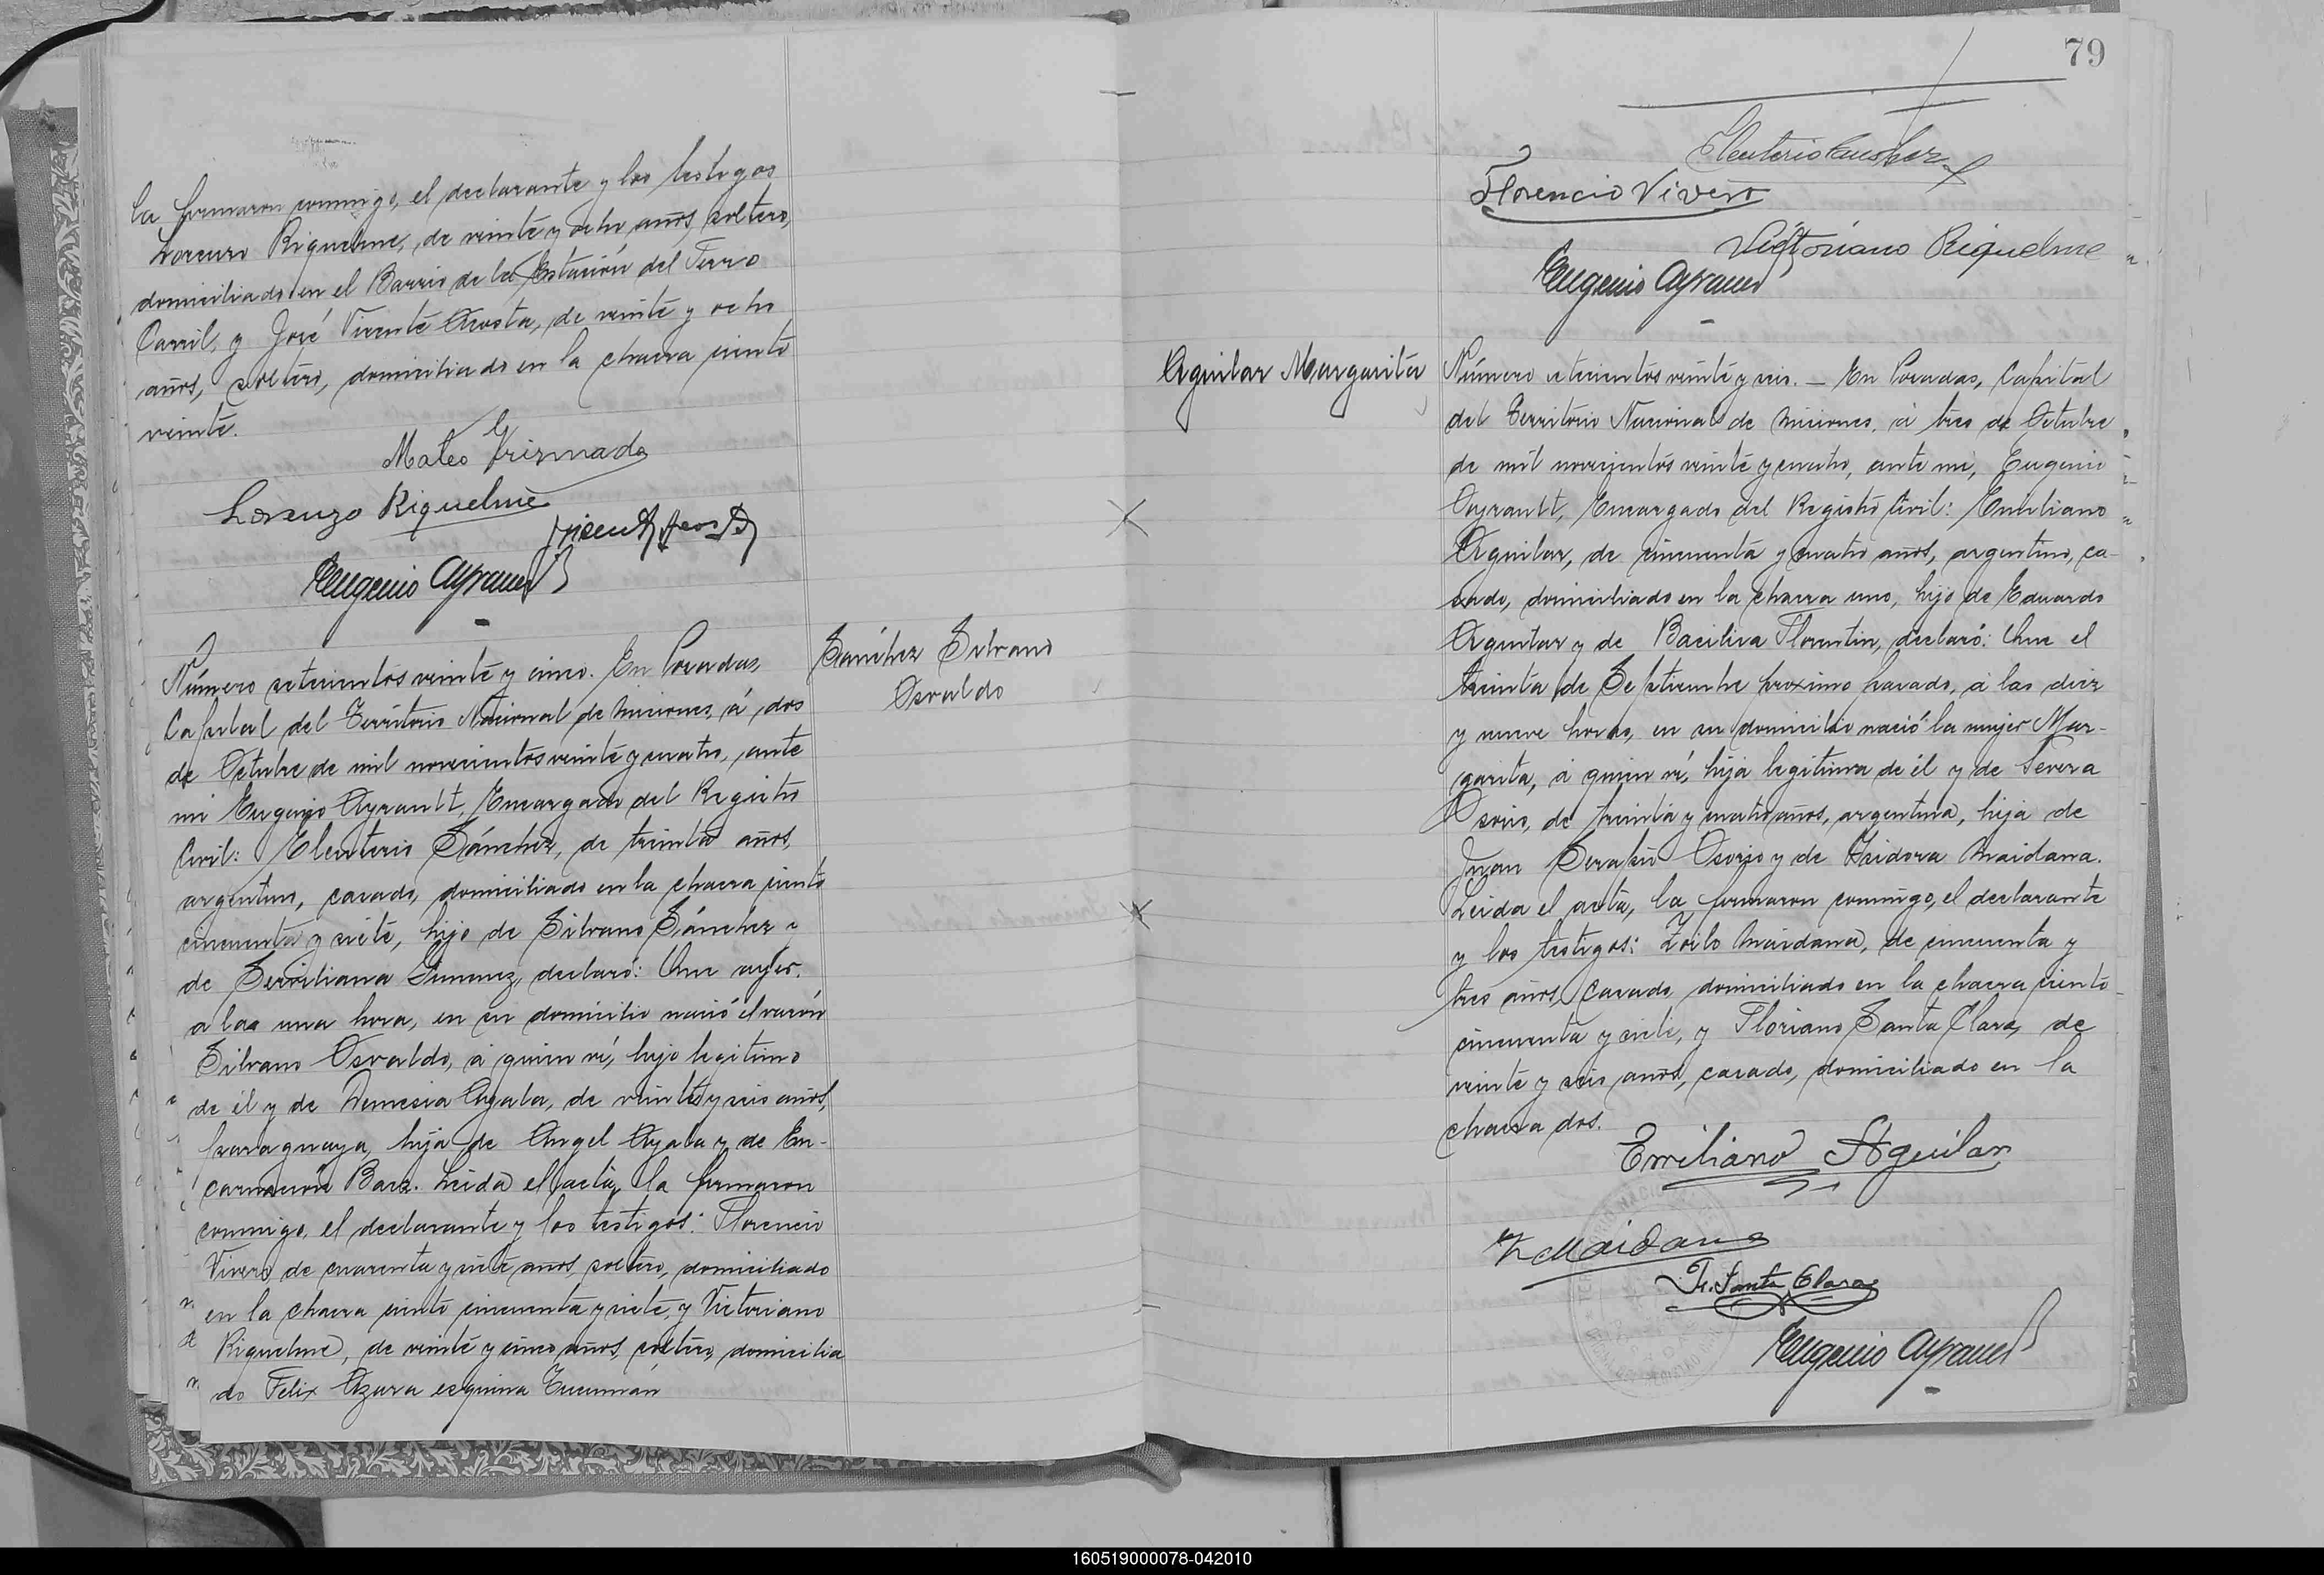 la firmaron conmigo, el declarante y los testigos
Lorenzo Riquelme, de veinte y ocho años, soltero,
domiciliado en el Barrio de la Estación del Ferro
Carril, y José Vicente Acosta, de veinte y ocho
años, soltero, domiciliado en la chacra ciento
veinte.
Mateo Grismado
Lorenzo Riquelme
Vicente Acosta
Eugenio Ayrault
Sánchez Silvano
Osvaldo
Número setecientos veinte y cinco. En Posadas,
Capital del Territorio Nacional de Misiones, á dos
de Octubre de mil novecientos veinte y cuatro, ante
mi Eugenio Ayrault, Encargado del Registro
Civil: Eleuterio Sánchez, de treinta años,
argentino, casado, domiciliado en la chacra ciento
cincuenta y siete, hijo de Silvano Sánchez y
de Serviliana Gimenez, declaró: Que ayer,
a las una hora, en su domicilio nació el varón
Silvano Osvaldo, á quien ví, hijo legitimo
de él y de Nemesia Ayala, de veinte y seis años,
paraguaya, hija de Angel Ayala y de En-
carnación Baez. Leida el acta, la firmaron
conmigo, el declarante y los testigos: Florencio
Vivero de cuarenta y siete años, soltero, domiciliado
en la chacra ciento cincuenta y siete, y Victoriano
Riquelme, de veinte y cinco años, soltero, domicilia
do Felix Azara esquina Tucumán
79
Eleuterio Sanchez
Florencio Vivero
Victoriano Riquelme
Eugenio Ayrault
Aguilar Margarita
Número setecientos veinte y seis. — En Posadas, Capital
del Territorio Nacional de Misiones, á tres de Octubre
de mil novecientos veinte y cuatro, ante mi, Eugenio
Ayrault, Encargado del Registro Civil: Emiliano
Aguilar, de cincuenta y cuatro años, argentino, ca-
sado, domiciliado en la chacra uno, hijo de Eduardo
Aguilar y de Basilisa Florentin, declaró: Que el
treinta de Septiembre próximo pasado, á las diez
y nueve horas, en su domicilio nació la mujer Mar-
garita, á quien ví, hija legitima de él y de Severa
Osorio, de treinta y cuatro años, argentina, hija de
Juan Serafin Osorio y de Isidora Maidana.
Leida el acta, la firmaron conmigo, el declarante
y los testigos: Zoilo Maidana, de cincuenta y
tres años, casado, domiciliado en la chacra ciento
cincuenta y siete, y Floriano Santa Clara, de
veinte y seis años, casado, domiciliado en la
chacra dos.
Emiliano Aguilar
Z Maidana
F. Santa Clara
Eugenio Ayrault
160519000078-042010